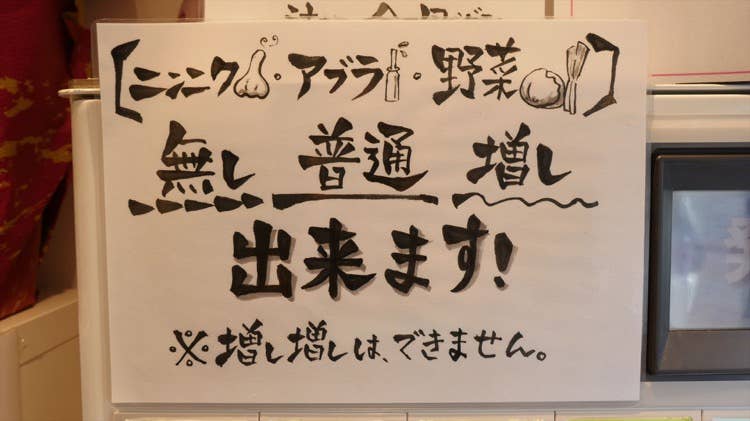 【ニンニク・アブラ・野菜】
無し 普通 増し
出来ます!
※増し増しは、できません。